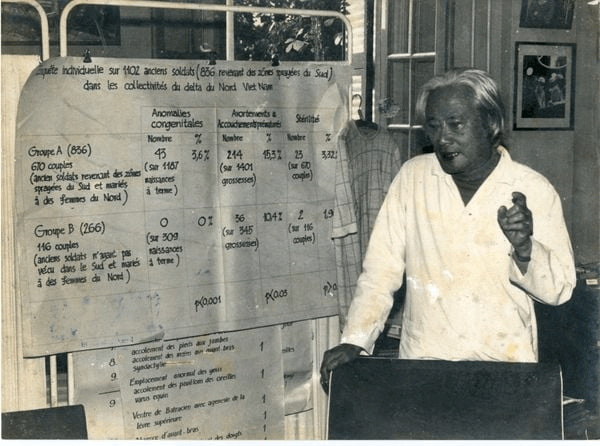 Enquête individuelle sur 1102 anciens soldats (836 revenant des zones sprayées du Sud)
dans les collectivités du delta du Nord Viet Nam
Anomalies congenitales
Avortements & Accouchements prématurés
Stérilité
Nombre % Nombre % Nombre %
Groupe A (836) 43 3,6% 214 15,3% 23 3,32
670 couples (sur 1187 (sur 1401 (sur 670
(anciens soldats revenant des zones naissances grossesses) couples)
sprayées du Sud et mariés à terme)
à des Femmes du Nord)
Groupe B (266) 0 0% 36 10,4% 2 1,9
116 couples (sur 309 (sur 345 (sur 116
(anciens soldats n'ayant pas naissances grossesses) couples)
vécu dans le Sud et mariés à terme)
à des femmes du Nord)
p<0,001 p<0.03 p>0
accolement des pieds aux jambes
8. accolement des mains aux avant-bras 1
syndactylie
9 Emplacement anormal des yeux 1
accolement des pavillons des oreilles
varus equin 1
Ventre de Batracien avec agenesie de la 1
lèvre supérieure
d'avant-bras 1
des doigts